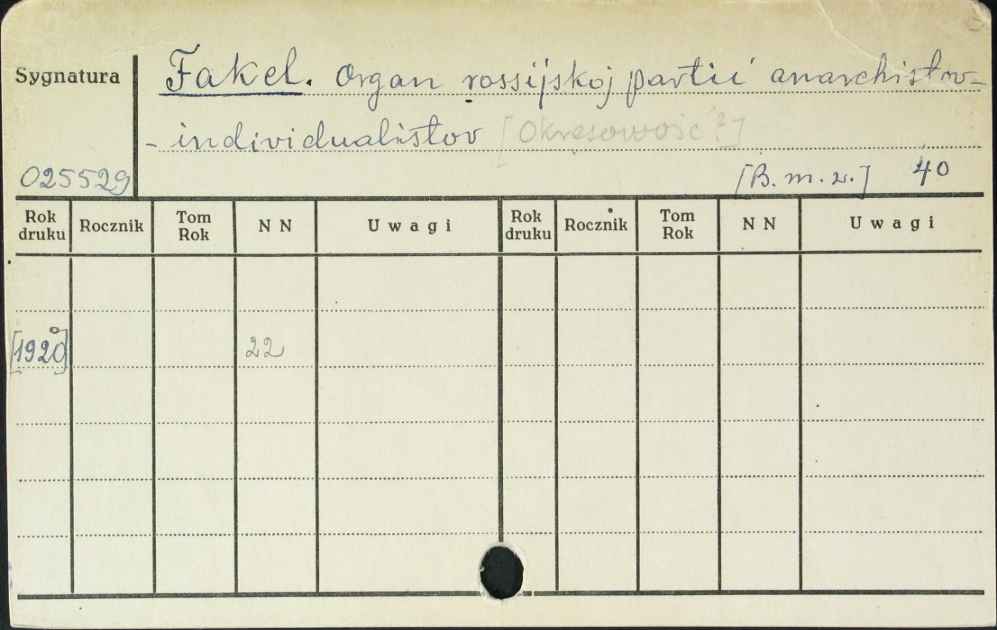 Sygnatura
Fakel. Organ rossijskoj partii anarchistov-
-individualistov [Okresowość?]
025529
[B. m. w.] 4o
Rok druku Rocznik Tom Rok NN Uwagi Rok druku Rocznik Tom Rok NN Uwagi
[1920] 22